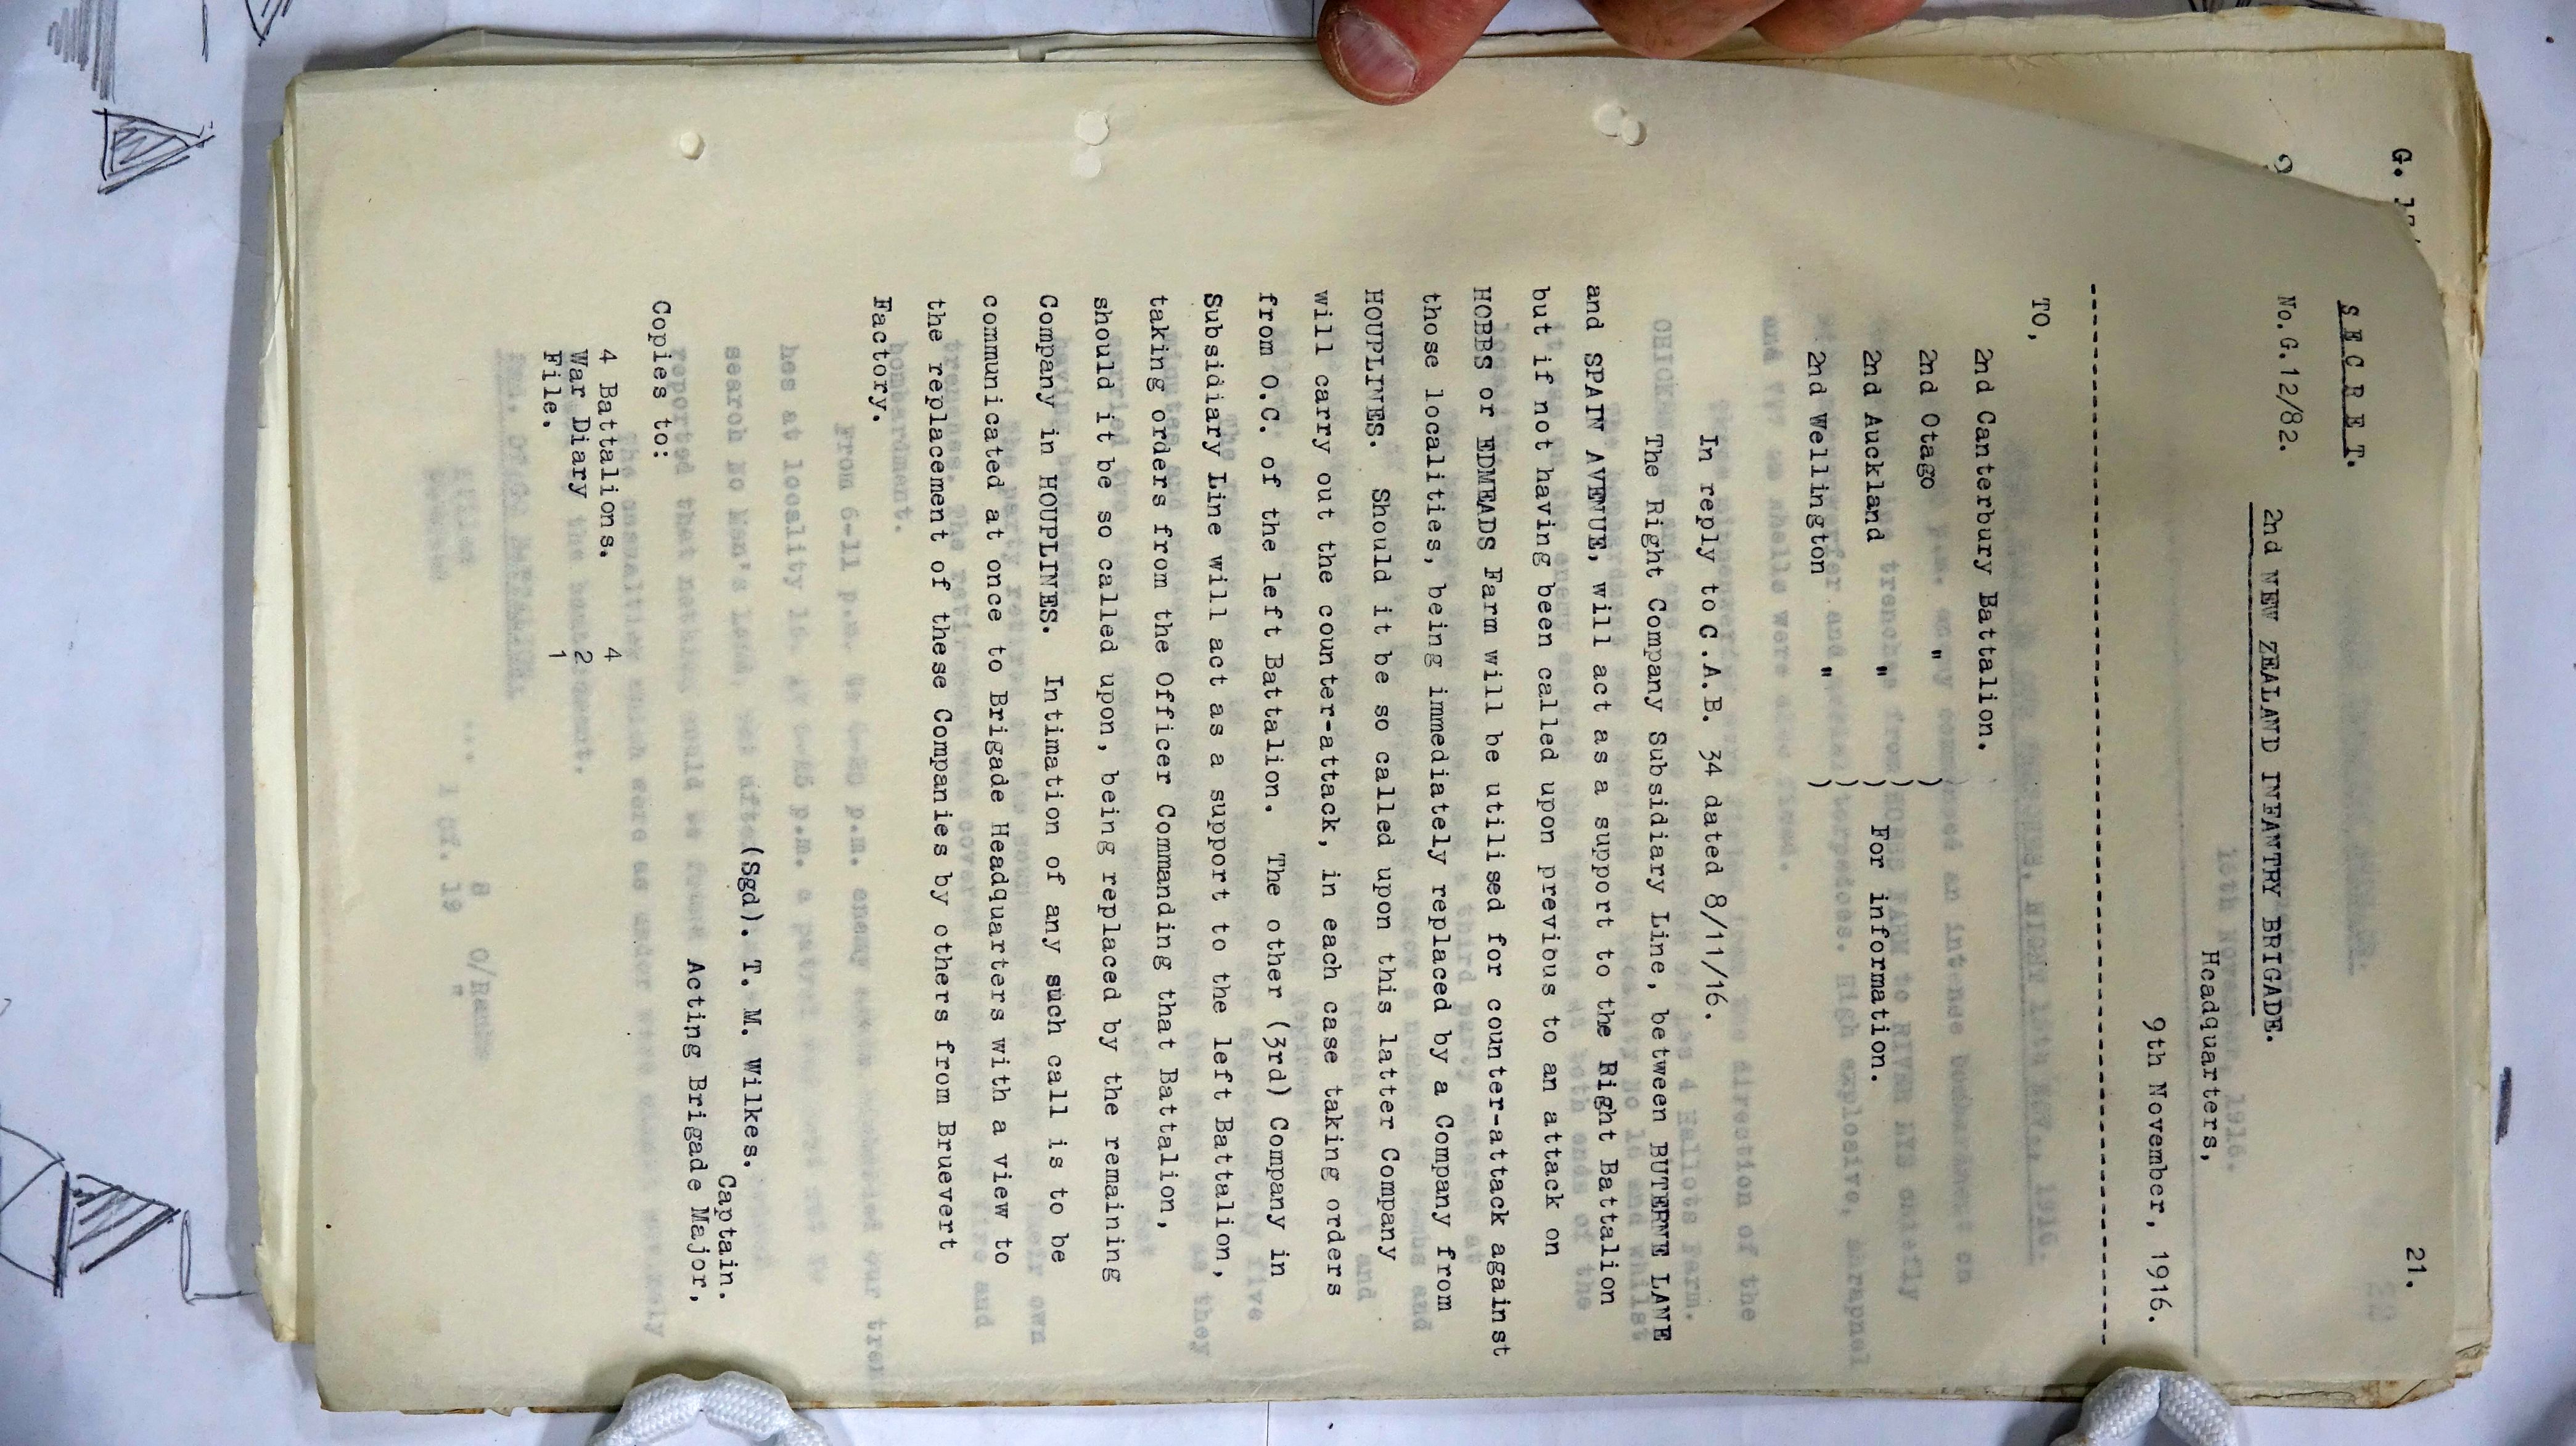 21.
S E C R E T.
No.G.12/82.
2nd NEW ZEALAND INFANTRY BRIGADE.
Headquarters,
9th November, 1916.
TO,
2nd Canterbury Battalion.
2nd Otago " )
2nd Auckland " ) For information.
2nd Wellington " )
In reply to C.A.B. 34 dated 8/11/16.
The Right Company Subsidiary Line, between BUTERNE LANE
and SPAIN AVENUE, will act as a support to the Right Battalion
but if not having been called upon previous to an attack on
HOBBS or EDMEADS Farm will be utilised for counter-attack against
those localities, being immediately replaced by a Company from
HOUPLINES. Should it be so called upon this latter Company
will carry out the counter-attack, in each case taking orders
from O.C. of the left Battalion. The other (3rd) Company in
Subsidiary Line will act as a support to the left Battalion,
taking orders from the Officer Commanding that Battalion,
should it be so called upon, being replaced by the remaining
Company in HOUPLINES. Intimation of any such call is to be
communicated at once to Brigade Headquarters with a view to
the replacement of these Companies by others from Bruevert
Factory.
(Sgd). T. M. Wilkes.
Captain.
Acting Brigade Major,
Copies to:
4 Battalions. 4
War Diary 2
File. 1